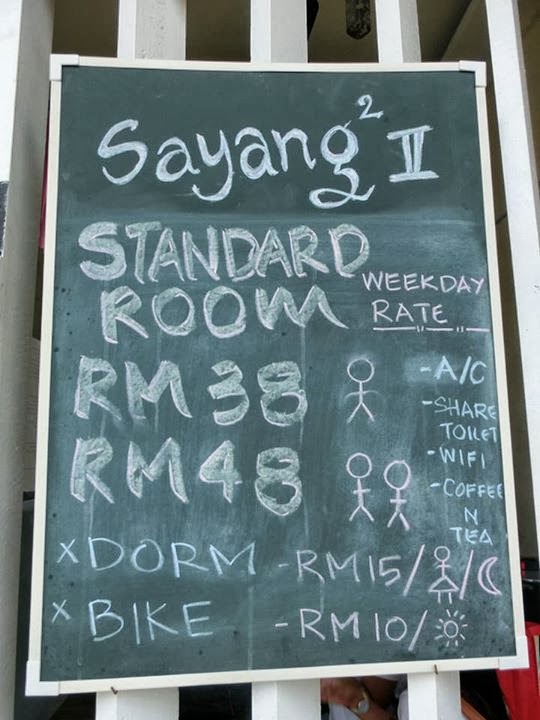 Sayang² II
STANDARD
ROOM
WEEKDAY
RATE
RM 38
RM 48
- A/C
- SHARE
TOILET
- WIFI
- COFFEE
N
TEA
x DORM - RM15/ /
x BIKE - RM10/